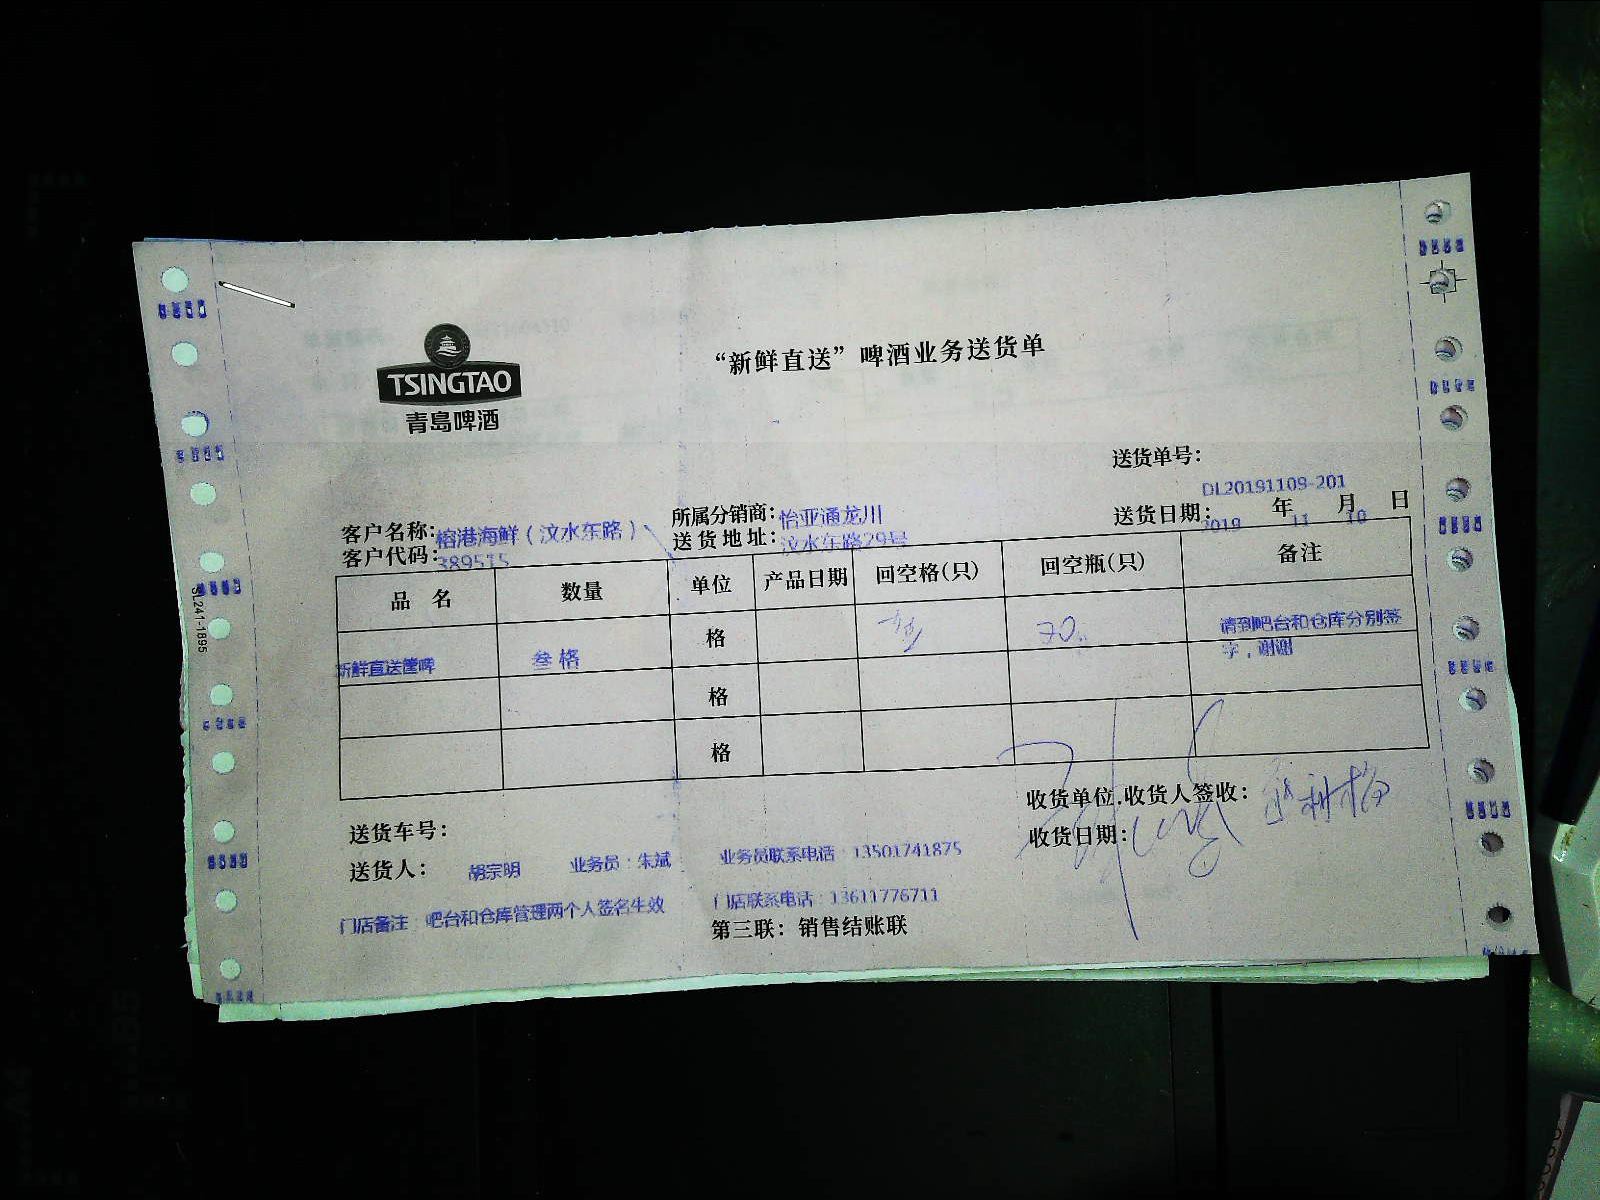 TSINGTAO
青岛啤酒
“新鲜直送”啤酒业务送货单
送货单号：
DL20191109-201
客户名称：榕港海鲜（汶水东路） 所属分销商：怡亚通龙川 送货日期：2019 年 11 月 10 日
客户代码：389515 送货地址：汶水东路29号
品 名 数量 单位 产品日期 回空格(只) 回空瓶(只) 备注
新鲜直送筐啤 叁格 格 70 请到吧台和仓库分别签字，谢谢
格
格
收货单位.收货人签收：
送货车号： 收货日期：
送货人： 胡宗明 业务员：朱斌 业务员联系电话：13501741875
门店备注：吧台和仓库管理两个人签名生效 门店联系电话：13611776711
第三联：销售结账联
SL241-1895